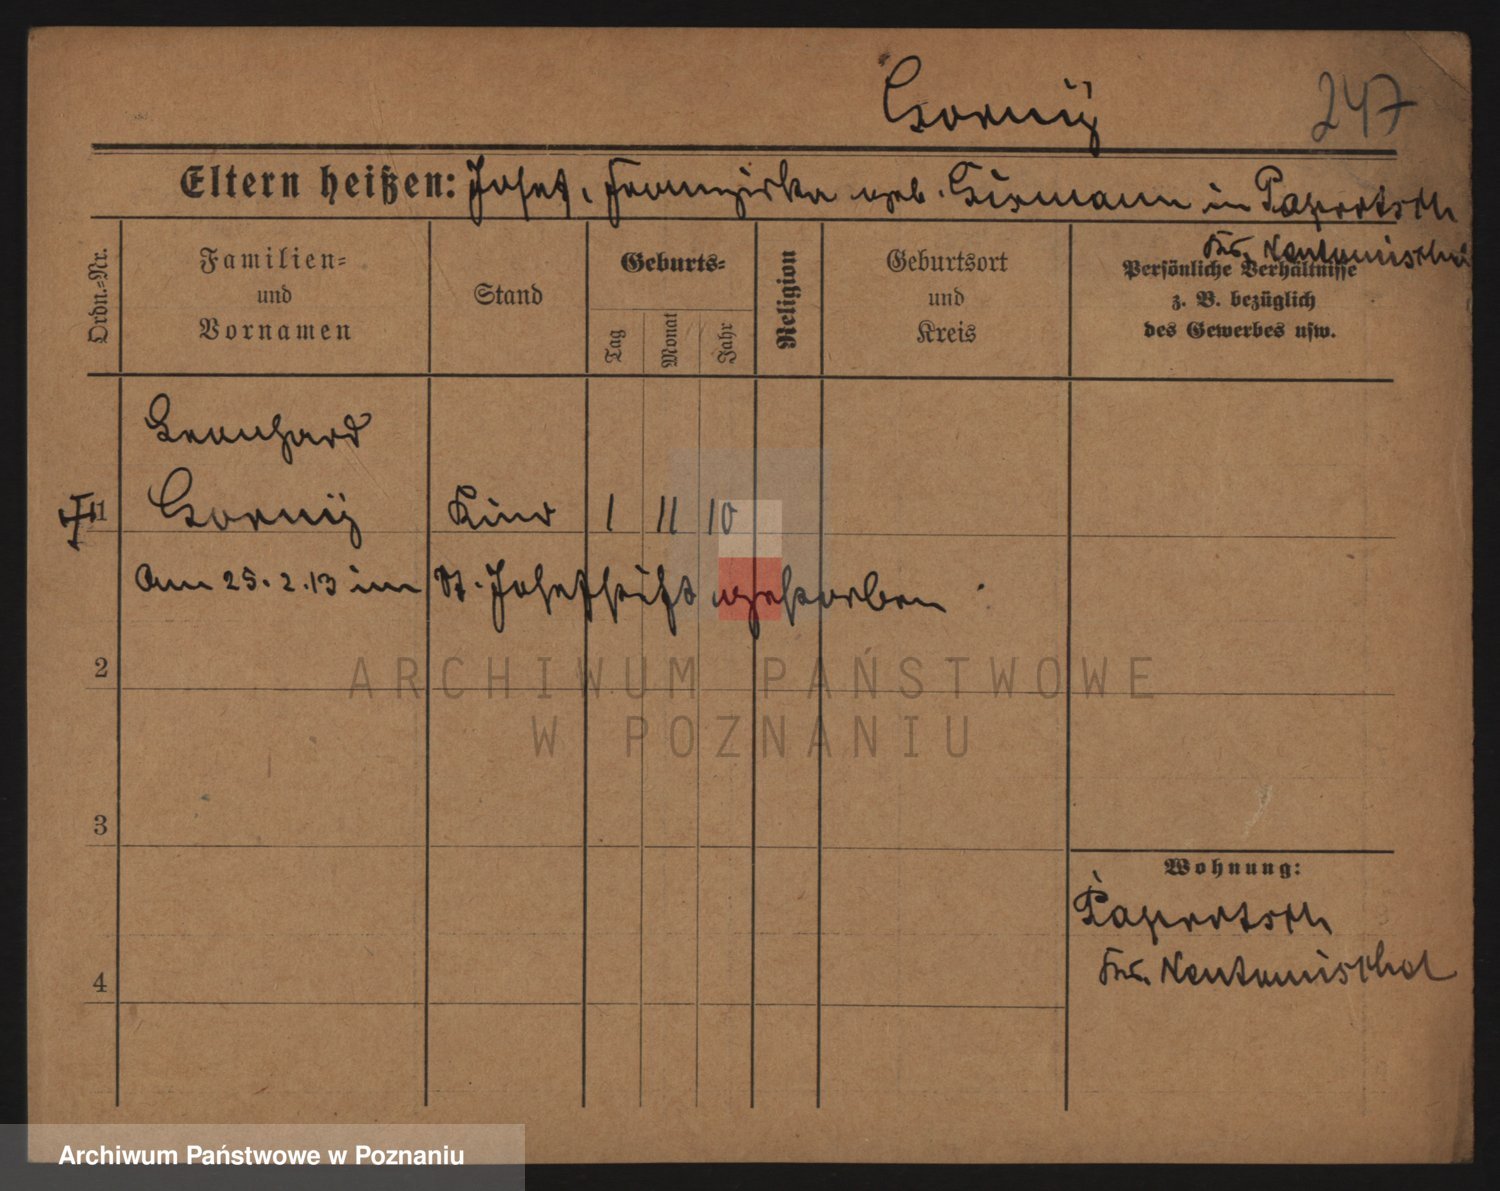 Gorny
247
Eltern heißen: Josef, Franziska geb. in Paprotsch
Krs. Neutomischel
Ordn.=Nr.
Familien=
und
Vornamen
Stand
Geburts=
Tag
Monat
Jahr
Religion
Geburtsort
und
Kreis
Persönliche Verhältnisse
z. B. bezüglich
des Gewerbes usw.
Leonhard
1 Gorny Kind 1 11 10
Am 25.2.13 im St. Josefstift gestorben
2
ARCHIWUM PAŃSTWOWE
W POZNANIU
3
Wohnung:
Paprotsch
4
Krs. Neutomischel
Archiwum Państwowe w Poznaniu